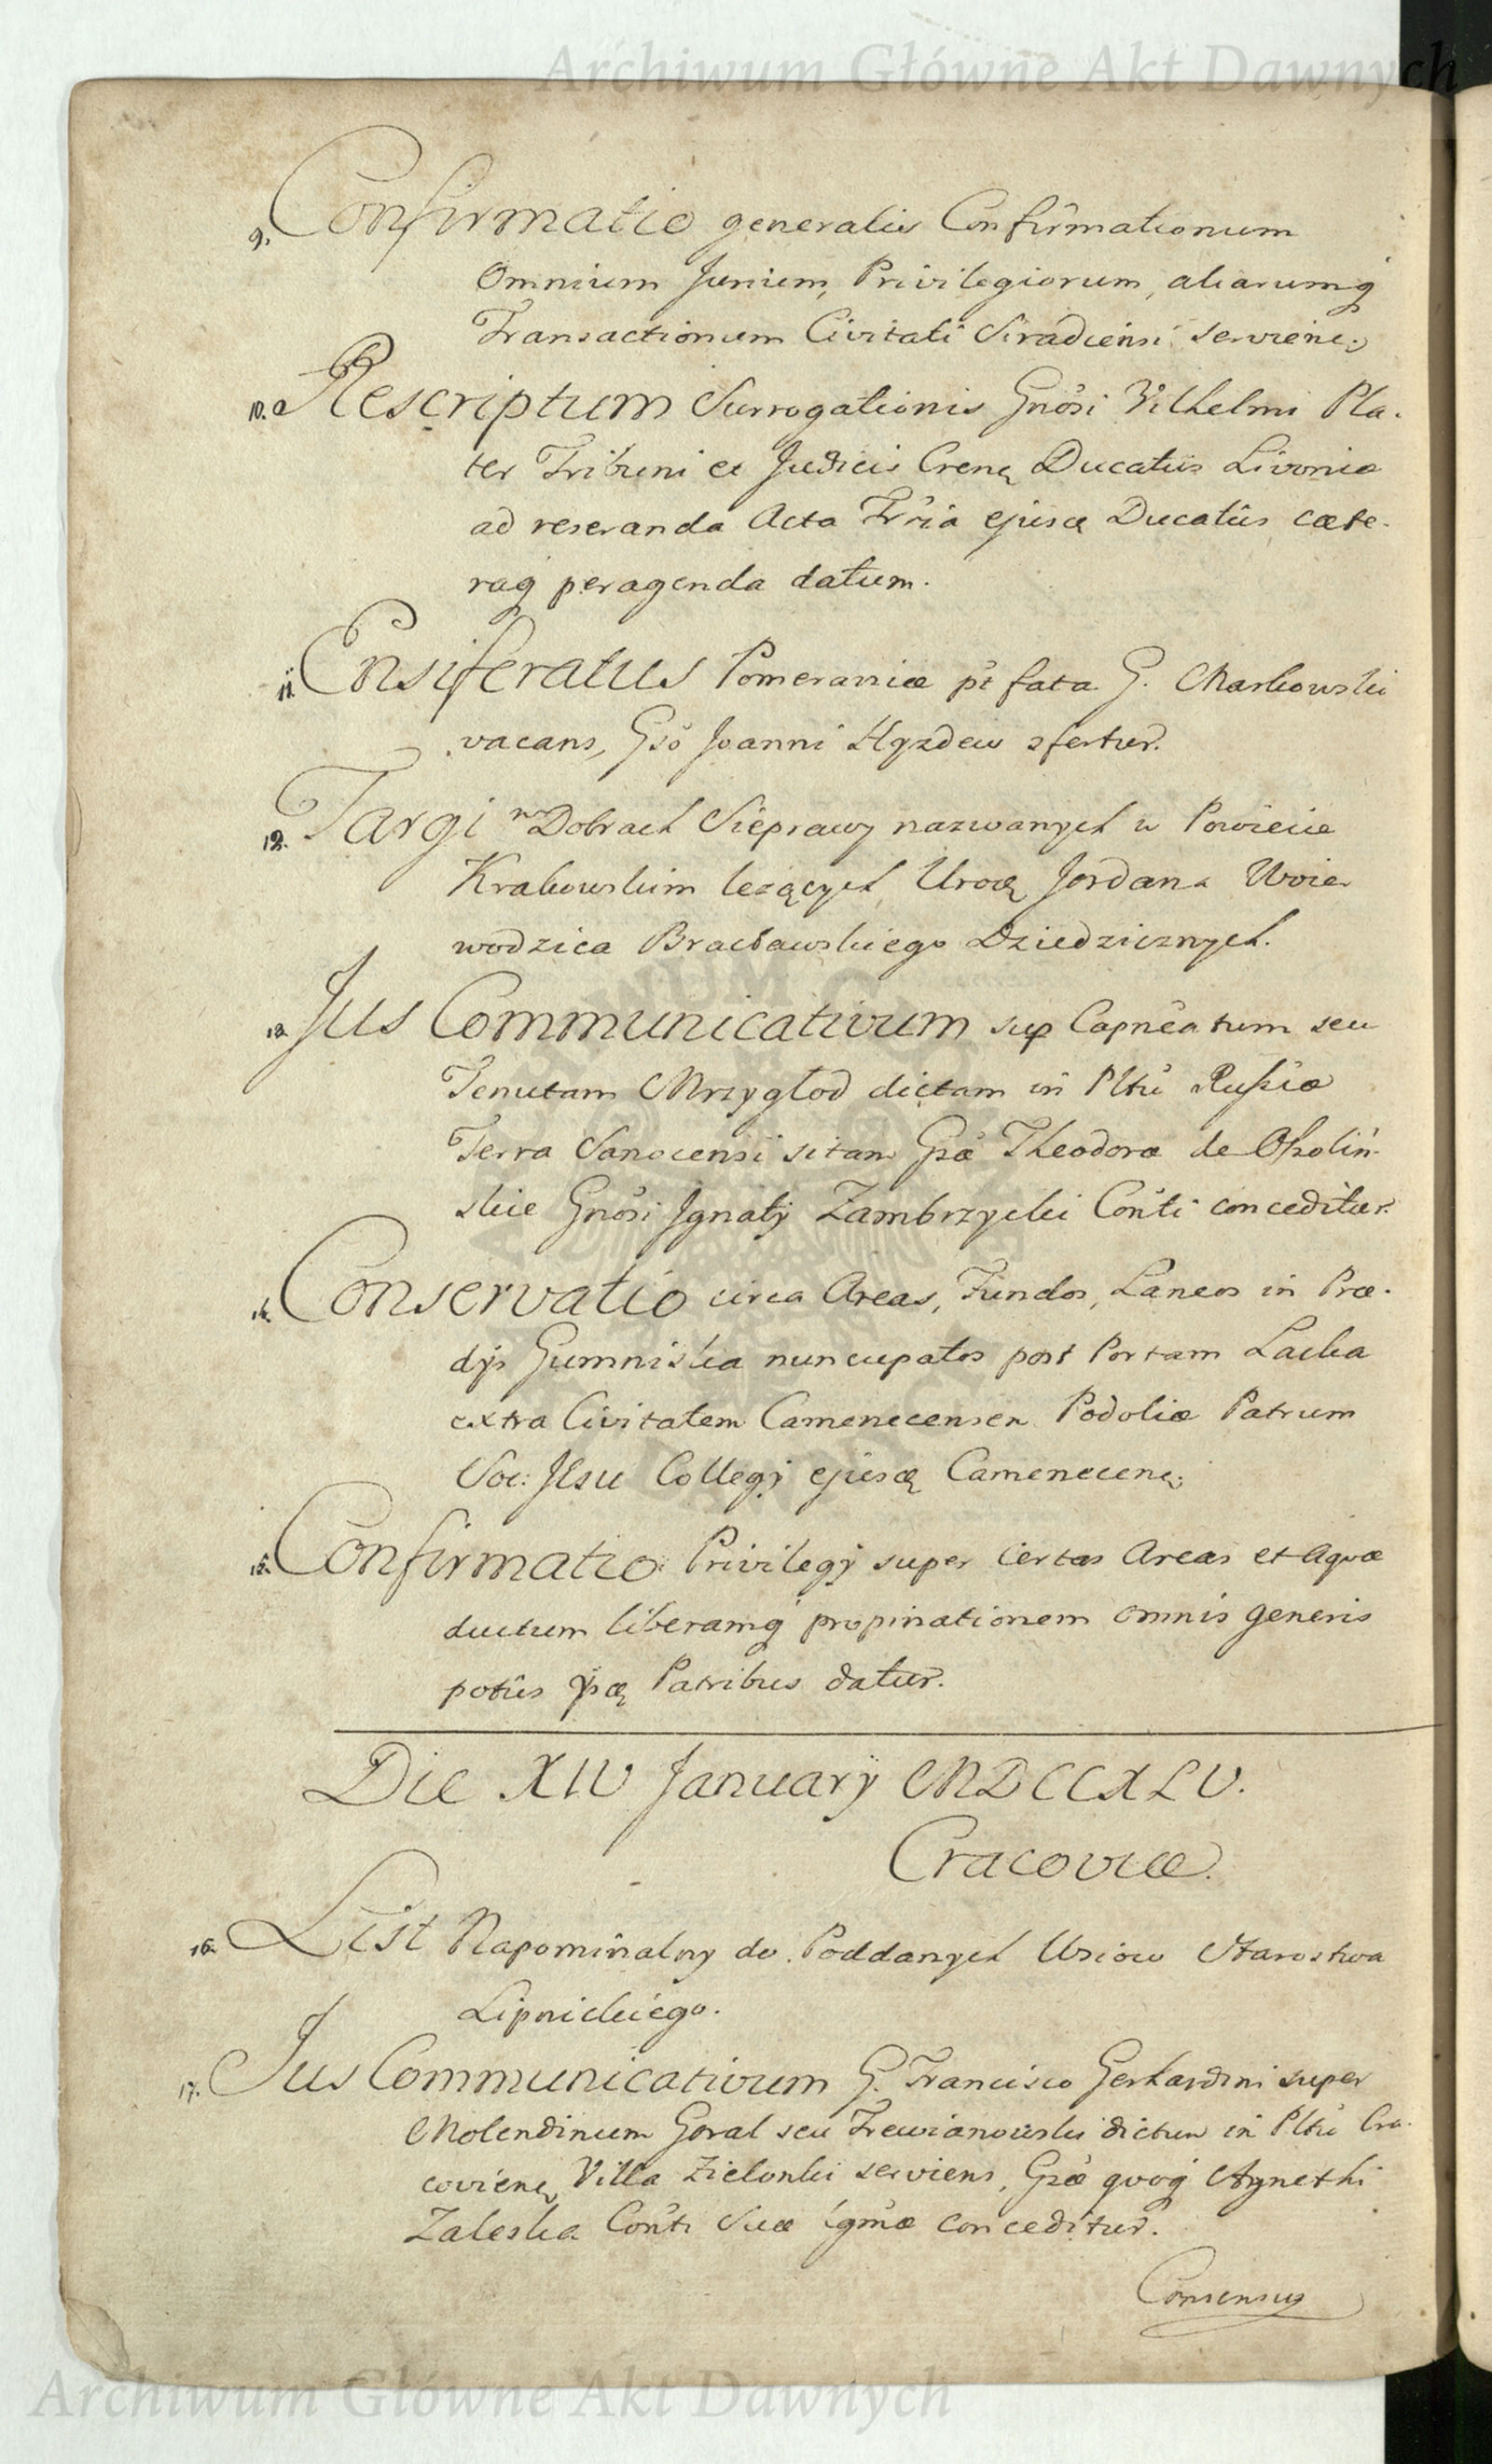 Archiwum Główne Akt Dawnych
9. Confirmatio generalis Confirmationum
Omnium Jurium, Privilegiorum, aliarumq
Transactionum Civitati Siradiensi servienẽ
10. Rescriptum Surrogationis Gnõsi Vilhelmi Pla-
ter Tribuni et Judicis Crenę Ducatûs Livoniæ
ad reseranda Acta Trria ejusđ Ducatûs, cæte-
raq peragenda datum.
11. Ensiferatus Pomeraniæ pt fata G. Markowski
vacans, Gso Joanni Hyzdew 9fertur.
12. Targi w Dobrach Sieprawy nazwanych w Powiecie
Krakowskim leżących, Urođ Jordana Woie-
wodzica Bracławskiego Dziedzicznych.
13. Jus Communicativum sup Capneatum seu
Tenutam Mrzygłod dictam in Pltu Russiæ
Terra Sanocensi sitam Gsæ Theodoræ de Ossolin-
skie Gnosi Ignatÿ Zambrzycki Conti conceditur.
14. Conservatio circa Areas, Fundos, Laneos in Præ-
dÿs Gumniska nuncupatos post Portam Lacka
extra Civitatem Camenecensem Podoliæ Patrum
Soc: Jesu Collegÿ ejusđ Camenecenẽ
15. Confirmatio Privilegÿ super certas Areas et Aquæ
ductum liberamq propinationem omnis generis
potûs Patribus datur.
Die XIV Januarÿ MDCCXLV.
Cracoviæ.
16. List Napominalny do Poddanych Wsiow Starostwa
Lipnickiego.
17. Jus Communicativum G. Francisco Gerhardini super
Molendinum Goral seu dictum in Pltu Cra-
covienę Villa Zielonki serviens, Gsæ quoq Agnethi
Zaleska Conti Suæ igmæ conceditur.
Consensus
Archiwum Główne Akt Dawnych